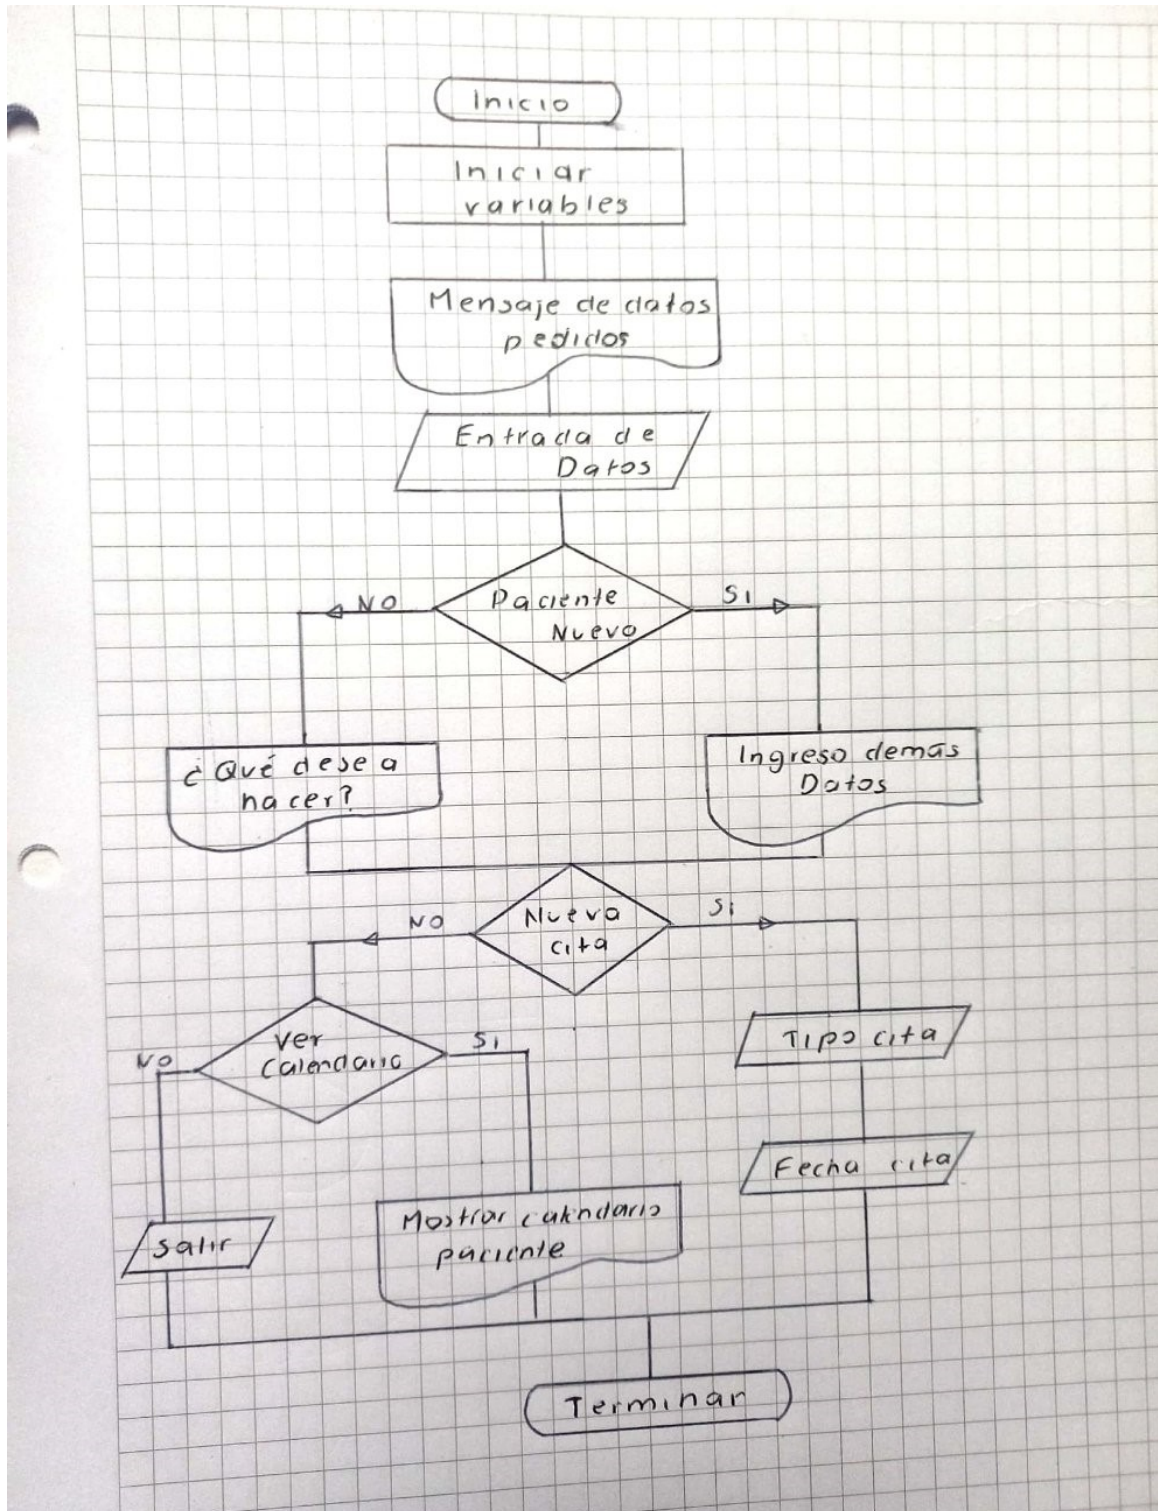 Inicio
Iniciar
variables
Mensaje de datos
pedidos
Entrada de
Datos
NO
Paciente
Nuevo
SI
¿Qué desea
hacer?
Ingreso demás
Datos
NO
Nueva
cita
SI
NO
Ver
Calendario
SI
Tipo cita
Fecha cita
Salir
Mostrar calendario
paciente
Terminar